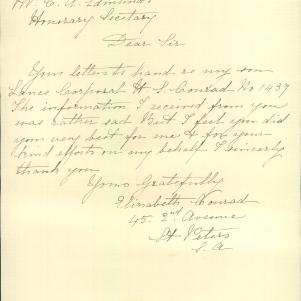 Mr. C. A. Edmunds
Honorary Secretary
Dear Sir
Your letter to hand re my son
Lance Corporal H S. Conrad No 1437
The information I received from you
was rather sad But I feel you did
your very best for me & for your
kind efforts on my behalf I sincerely
thank you
Yours Gratefully
Elizabeth Conrad
45. 2nd Avenue
St Peters
S. A